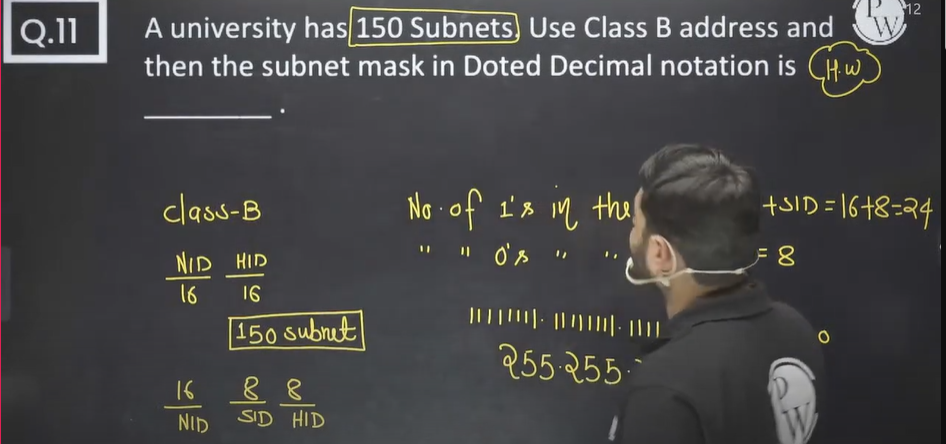 Q.11
A university has 150 Subnets. Use Class B address and
then the subnet mask in Doted Decimal notation is H.W
____________.
PW
12
class-B
NID HID
16 16
150 subnet
16 8 8
NID SID HID
No. of 1's in the +SID = 16+8=24
" " 0's " " = 8
11111111. 11111111. 1111 0
255.255.
PW